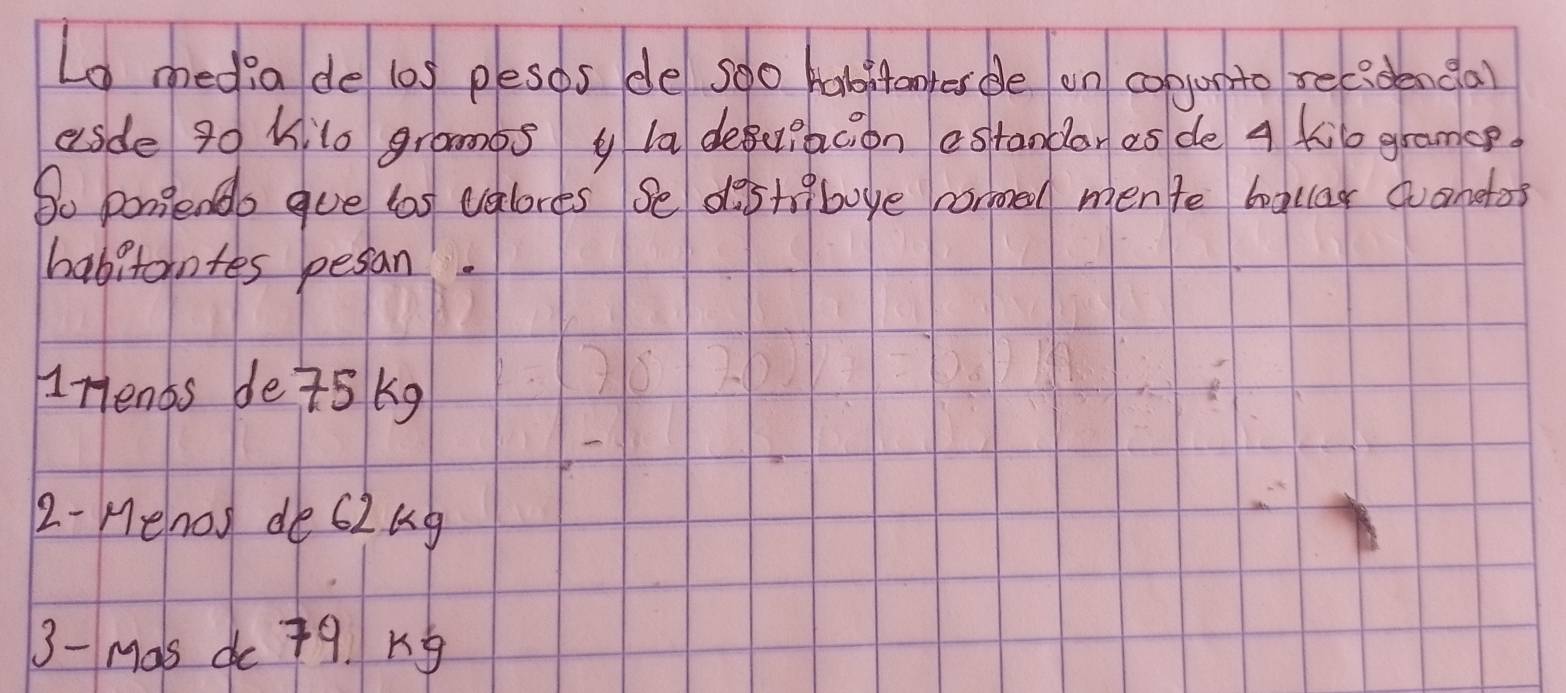 La media de los pesos de 500 habitantes de un conjunto recidencial
esde 70 kilo gramos y la desviacion estandar es de 4 kilo gramos.
So poniendo que los valores se distribuye normal mente hallar cuandos
habitantes pesan.
1-Menos de 75 kg
2-Menos de 62 kg
3-Mas de 79. Kg